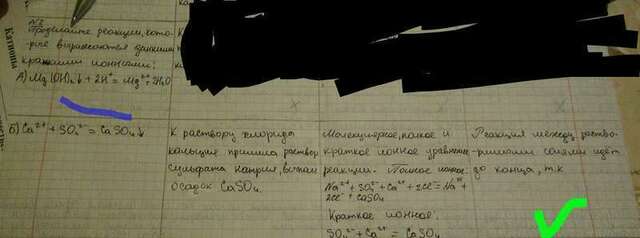 Катионы
№2
Проделайте реакции, кото-
рые выражаются данными
краткими ионными:
А) Mg(OH)₂↓ + 2H⁺ = Mg²⁺ + 2H₂O
Б) Ca²⁺ + SO₄²⁻ = CaSO₄↓
К раствору хлорида
кальция прилила раствор
сульфата натрия, выпал
осадок CaSO₄.
Молекулярное, полное и
краткое ионное уравнение
реакции. Полное ионное:
Na²⁺ + SO₄²⁻ + Ca²⁺ + 2Cl⁻ = Na²⁺ +
2Cl⁻ + CaSO₄
Краткое ионное:
SO₄²⁻ + Ca²⁺ = CaSO₄
Реакция между раство-
римыми солями идёт
до конца, т.к